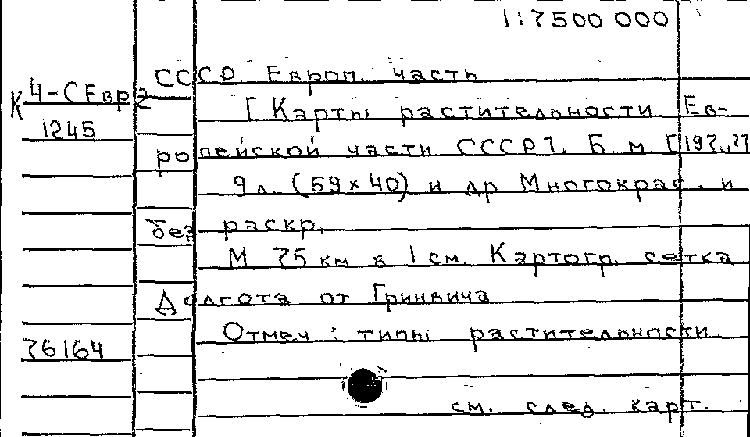 1:7500 000
СССР. Европ. часть
К 4-СЕвр2
1245
[Карты растительности Ев-
ропейской части СССР]. Б. м. [192.,??
9 л. (59×40) и др. Многокрас. и
без раскр.
М 75 км в 1 см. Картогр. сетка
Долгота от Гринвича
Отмеч.: типы растительности.
76164
см. след. карт.